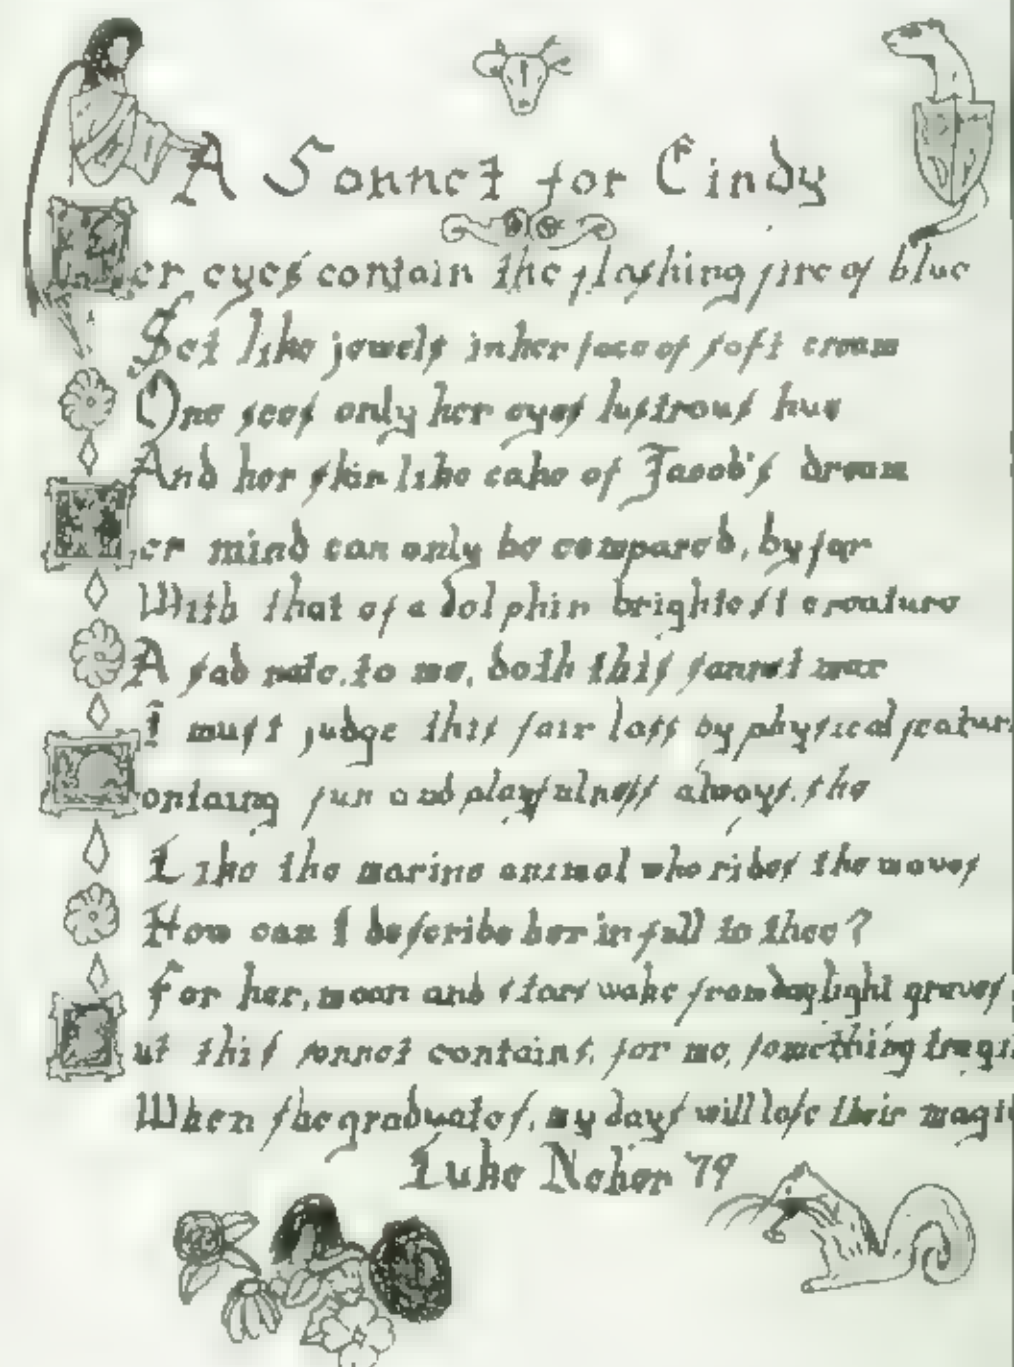 A Sonnet for Cindy
Her eyes contain the flashing fire of blue
Set like jewels in her face of soft cream
One sees only her eyes lustrous hue
And her skin like cake of Jacob's dream
Her mind can only be compared, by far
With that of a dolphin brightest creature
A sad note, to me, doth this sonnet mar
I must judge this fair lass by physical featur
Containing fun and playfulness always, she
Like the marine animal who rides the waves
How can I describe her in full to thee?
For her, moon and stars wake from daylight graves
But this sonnet contains, for me, something tragi
When she graduates, my days will lose their magi
Luke Neher '79